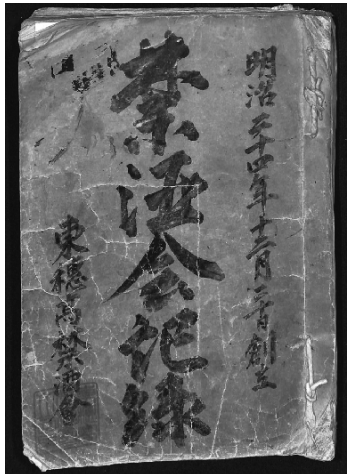 明治二十四年十二月二十日創立
禁酒会記録
東穂高禁酒会